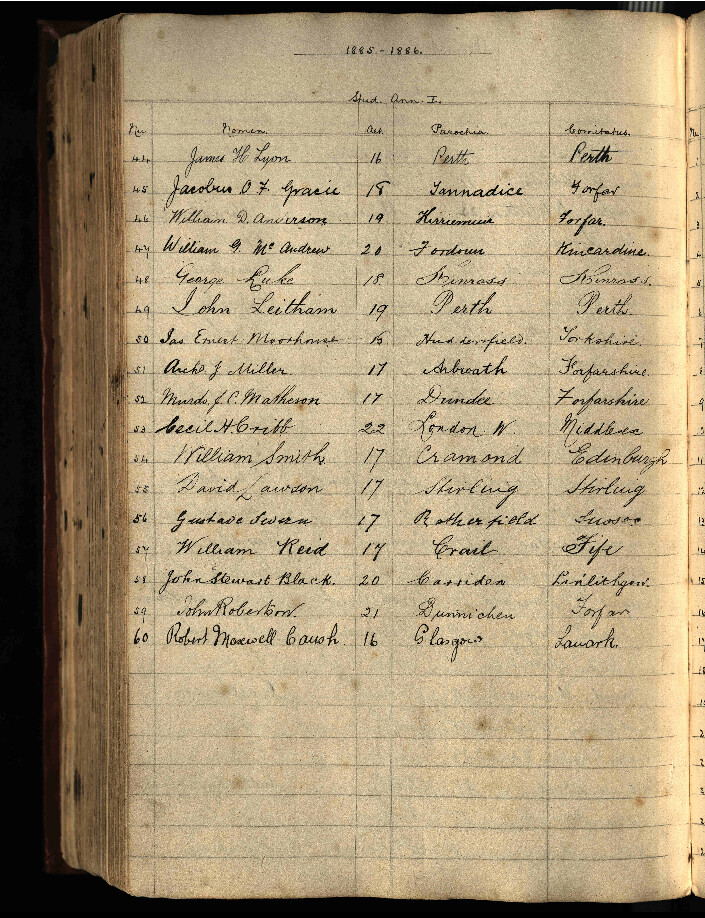 1885-1886.
Stud. Ann. I.
No. Nomen. Aet. Parochia. Comitatus.
44 James H. Lyon 16 Perth Perth
45 Jacobus O. F. Gracie 18 Tannadice Forfar
46 William D. Anderson 19 Kirriemuir Forfar.
47 William G. McAndrew 20 Fordoun Kincardine.
48 George Luke 18 Kinross Kinross.
49 John Leitham 19 Perth Perth.
50 Jas Ernest Moorhouse Huddersfield. Yorkshire.
51 Archd J. Miller 17 Arbroath Forfarshire.
52 Murdo J. C. Matheson 17 Dundee Forfarshire
53 Cecil H. Cribb 22 London W. Middlesex
54 William Smith 17 Cramond Edinburgh
55 David Lawson 17 Stirling Stirling
56 Gustave Severn 17 Rotherfield Sussex
57 William Reid 17 Crail Fife
58 John Stewart Black. 20 Carriden Linlithgow.
59 John Robertson. 21 Dunnichen Forfar
60 Robert Maxwell 16 Glasgow Lanark.